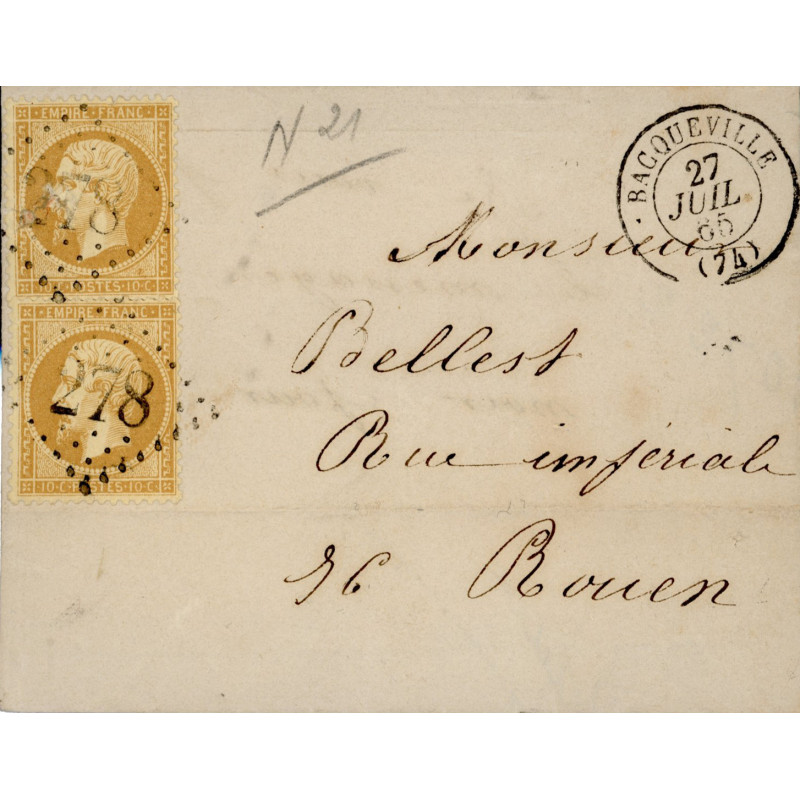 EMPIRE FRANC
278
10·C·POSTES·10·C
EMPIRE FRANC
278
10·C·POSTES·10·C
N 21
BACQUEVILLE
27
JUIL
65
(74)
Monsieur
Bellest
Rue impériale
96 Rouen